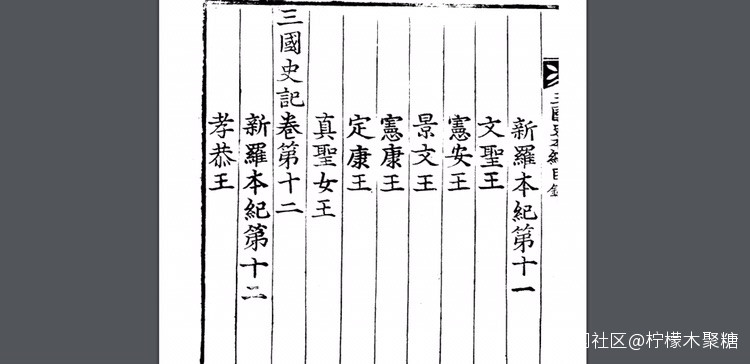 三國史記本紀目錄
新羅本紀第十一
文聖王
憲安王
景文王
憲康王
定康王
真聖女王
三國史記卷第十二
新羅本紀第十二
孝恭王
社区@柠檬木聚糖